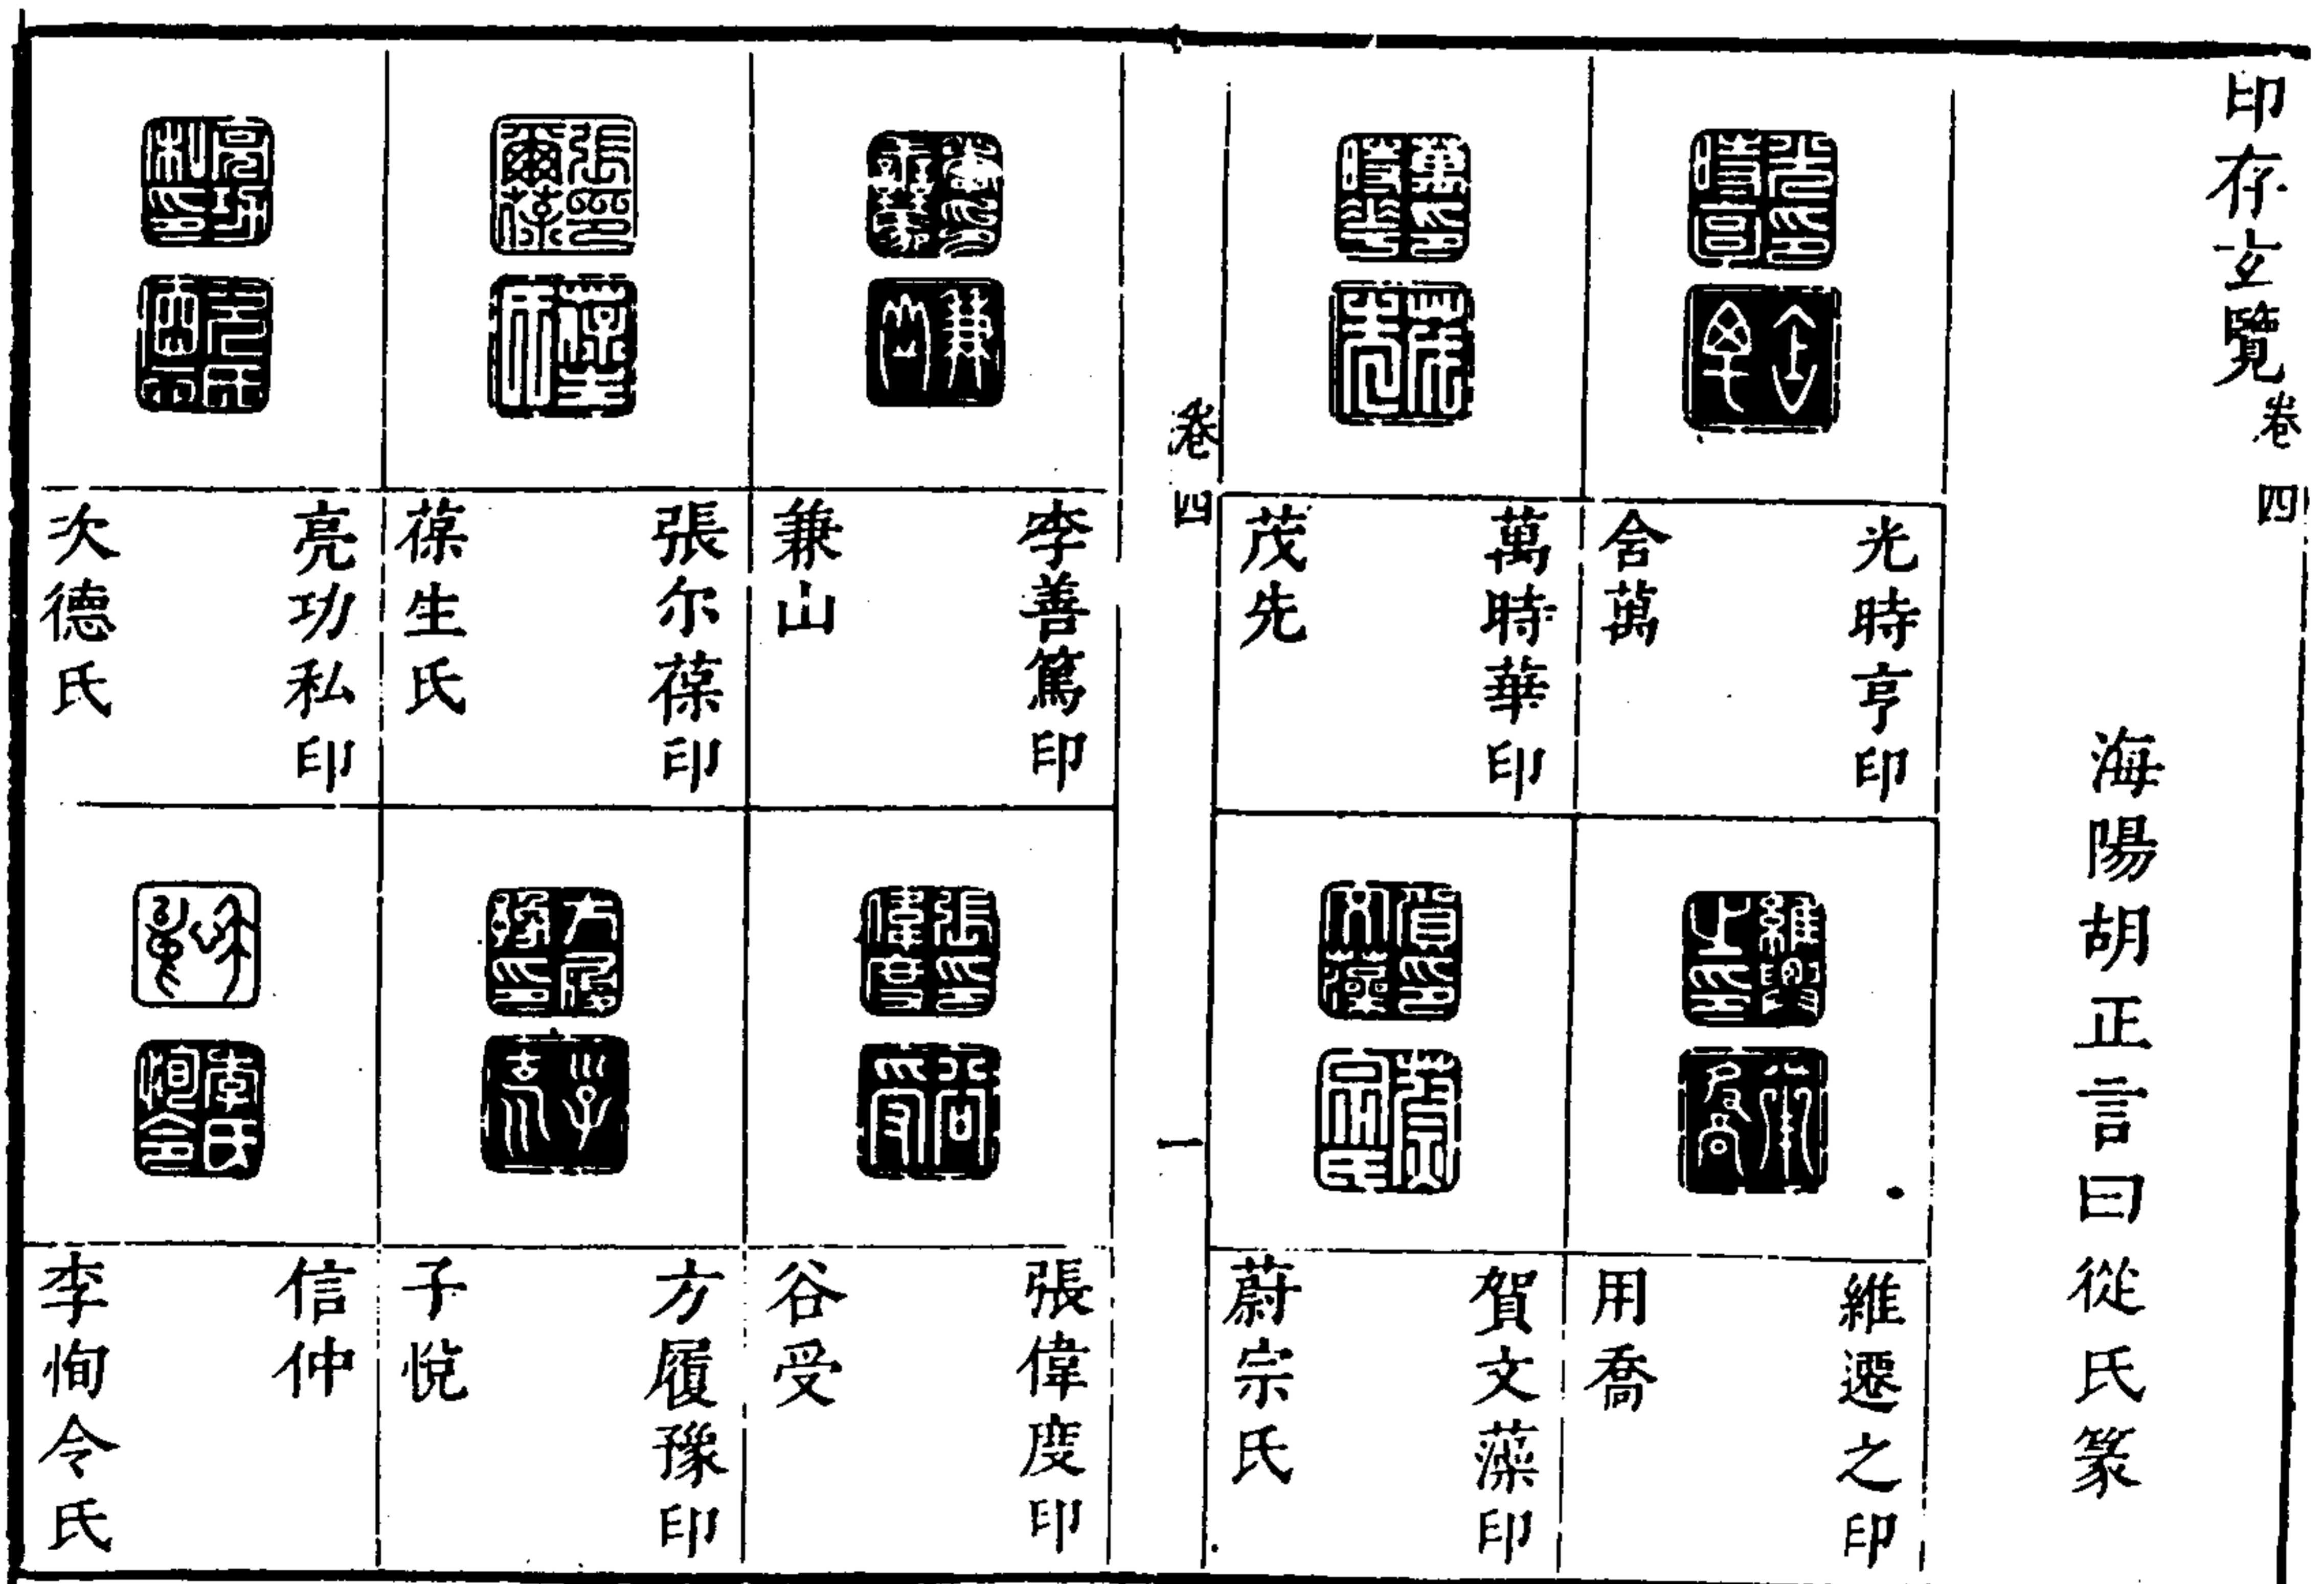 印存玄覽卷四
海陽胡正言曰從氏篆
光時亨印
舍萬
萬時華印
茂先
維遷之印
用喬
賀文藻印
蔚宗氏
卷四
一
李善篤印
兼山
張尔葆印
葆生氏
亮功私印
次德氏
張偉度印
谷受
方履豫印
子悅
信仲
李恂令氏